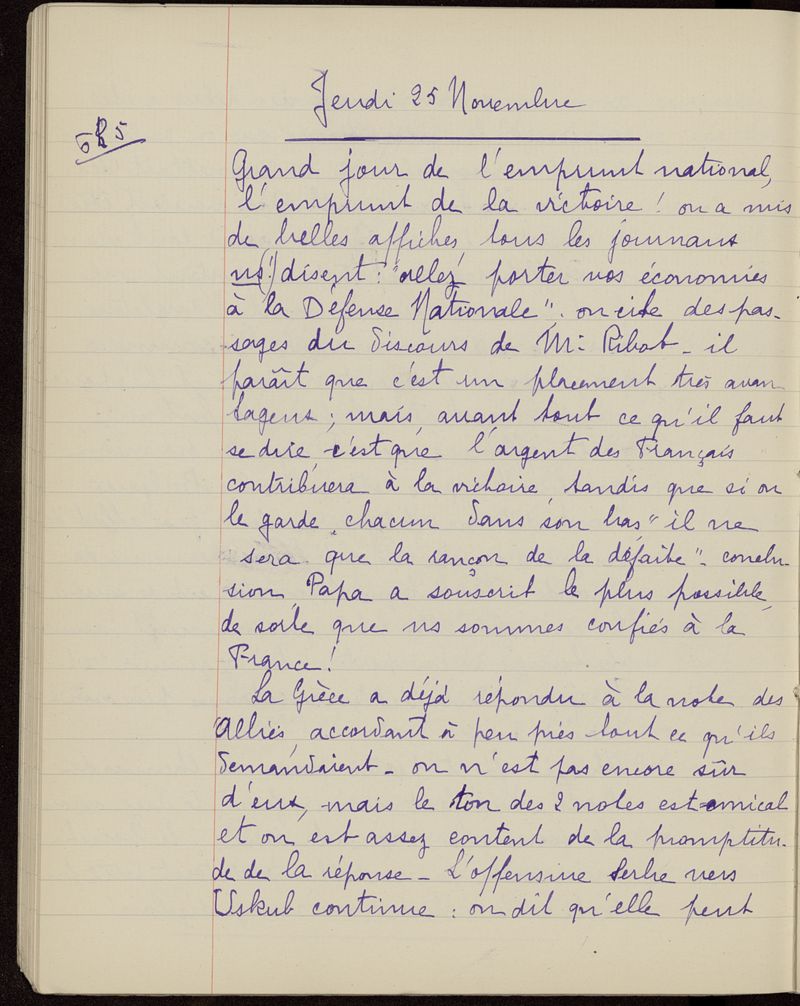 Jeudi 25 Novembre
Grand jour de l'emprunt national,
l'emprunt de la victoire ! on a mis
de belles affiches, tous les journaux
ns (!) disent : "allez porter vos économies
à la Défense Nationale". on cite des pas-
sages du discours de Mr Ribot - il
paraît que c'est un placement très avan
tageux ; mais, avant tout ce qu'il faut
se dire, c'est que l'argent des Français
contribuera à la victoire, tandis que si on
le garde "chacun dans son bas" il ne
sera "que la rançon de la défaite". conclu-
sion, Papa a souscrit le plus possible,
de sorte que ns sommes confiés à la
France !
La Grèce a déjà répondu à la note des
Alliés, accordant à peu près tout ce qu'ils
demandaient - on n'est pas encore sûr
d'eux, mais le ton des 2 notes est amical
et on est assez content de la promptitu-
de de la réponse - L'offensive Serbe vers
Uskub continue : on dit qu'elle peut